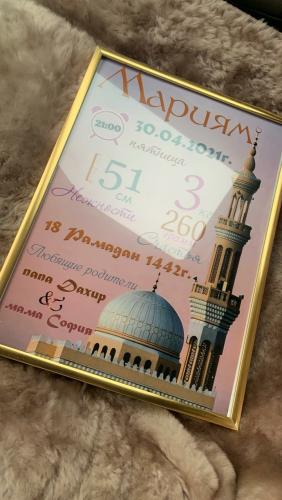 Мариям
21:00
30.04.2021г.
пятница
51
см
Нежности
3
кг
260
грамм
Счастья
18 Рамадан 1442г.
Любящие родители
папа Дахир
&
мама София